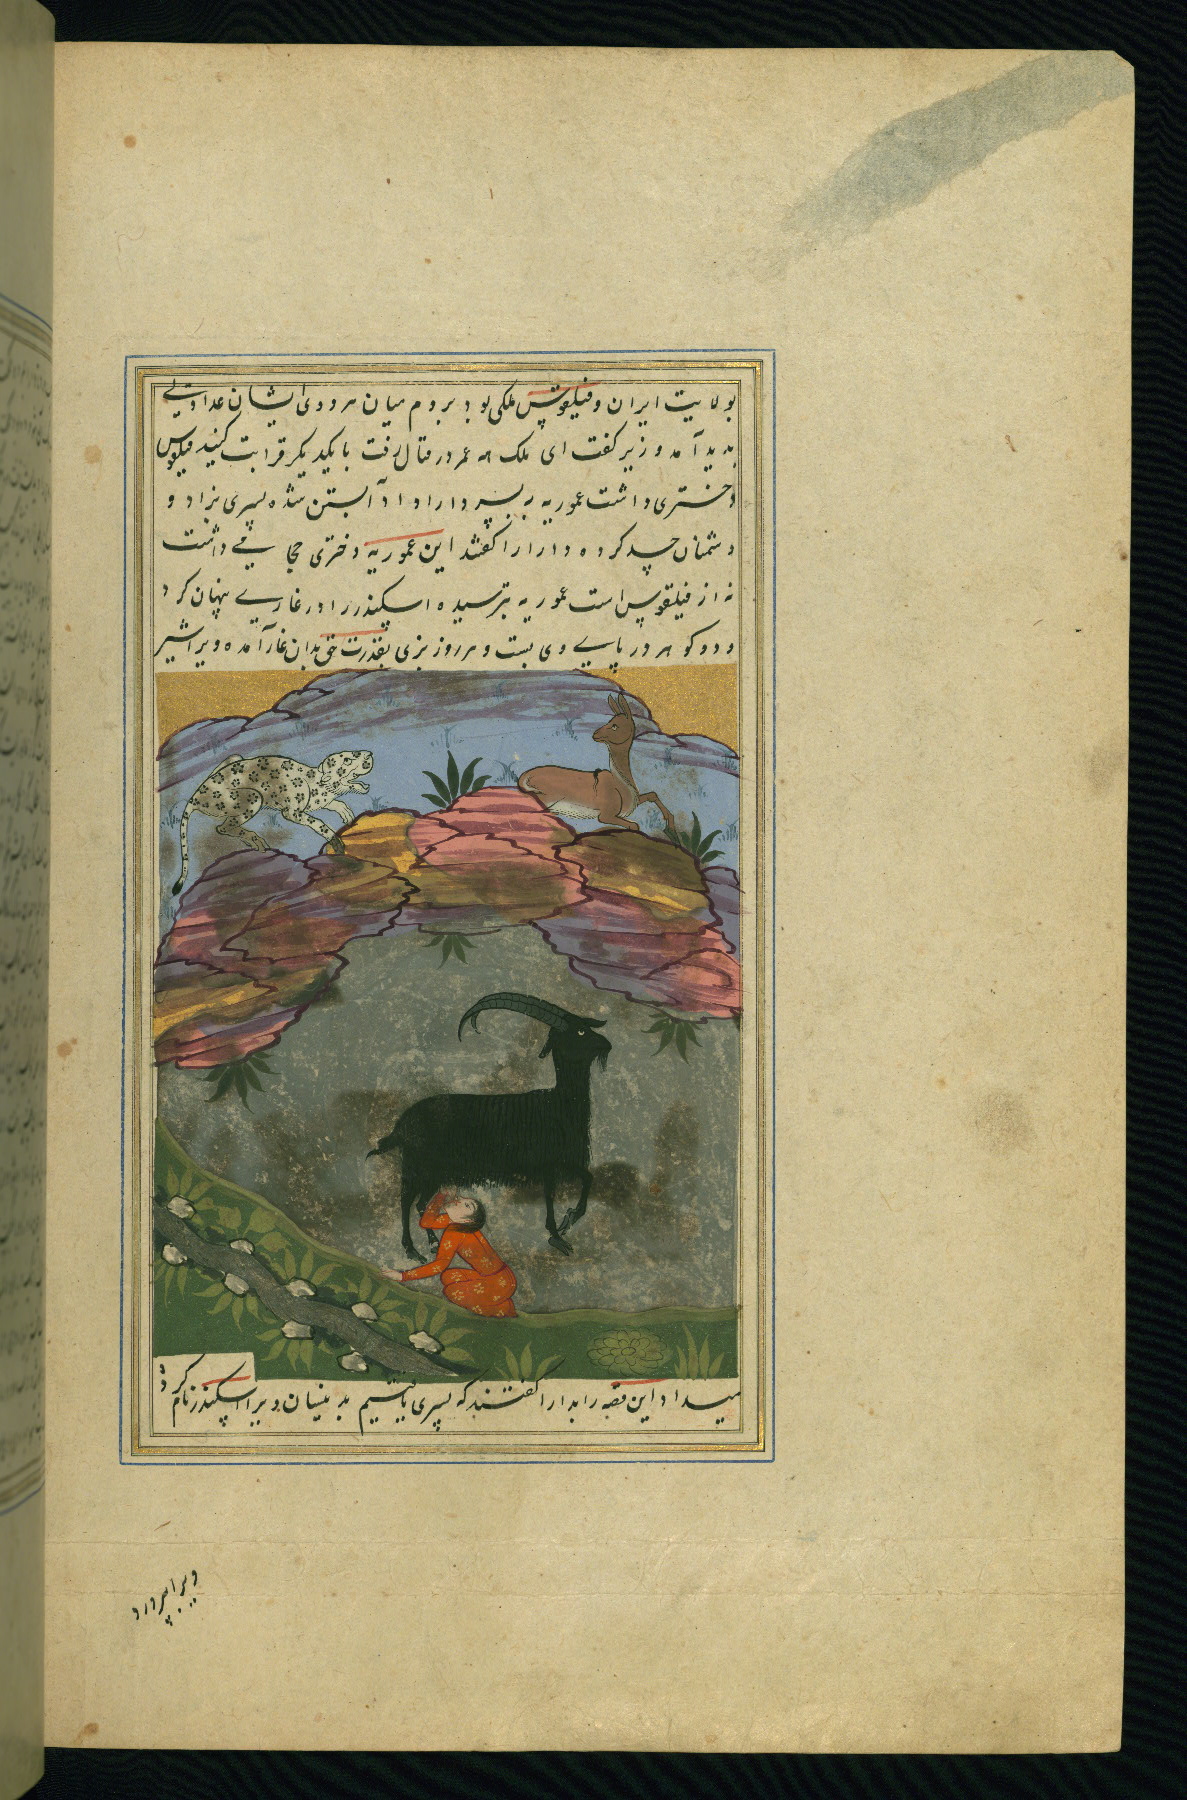 بولایت ایران و فیلقوس ملکی بود بروم میان هر دوی ایشان عداوتی
بدید آمد وزیر گفت ای ملک همه عمر در قتال رفت با یکدیگر قرابت کنید فیلقوس
دختری داشت عموریه به پسر دارا داد آبستن شده پسری بزاد و
دشمنان حسد کرده دارا را گفتند این عموریه دختری حجامی داشت
نه از فیلقوس است عموریه بترسید اسکندر را در غاری پنهان کرد
و دو کوهر در پای وی بست و هر روز بزی بقدرت حق بدان غار آمده ویرا شیر
میداد این قصه را بدارا گفتند که پسری یافتیم بدینسان ویرا اسکندر نام کرد
ویرا بپرورد